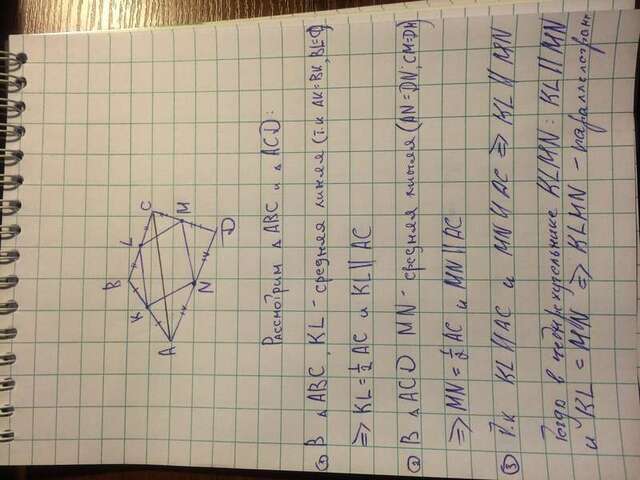 B
K
L
C
M
A
N
D
Рассмотрим △ ABC и △ ACD:
① В △ ABC, KL - средняя линия (т.к AK=BK, BL=
⇒ KL = 1/2 AC и KL || AC
② В △ ACD MN - средняя (AN=DN; CM=DM)
⇒ MN = 1/2 AC и MN || AC
③ Т.к KL || AC и MN || AC ⇒ KL || MN
Тогда в четырехугольнике KLMN: KL || MN
и KL = MN ⇒ KLMN - параллелограмм